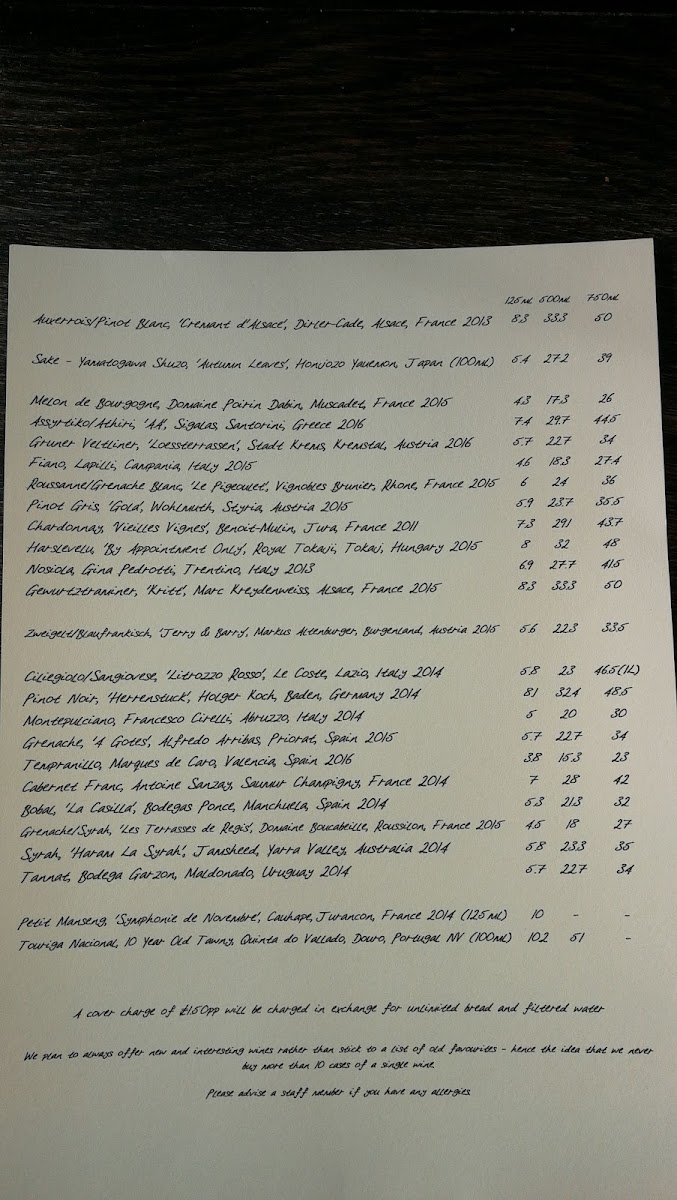 125ml 500ml 750ml
Auxerrois/Pinot Blanc, 'Cremant d'Alsace', Dirler-Cade, Alsace, France 2013 8.3 33.3 50
Sake - Yamatogawa Shuzo, 'Autumn Leaves', Honjozo Yauemon, Japan (100ml) 5.4 27.2 39
Melon de Bourgogne, Domaine Poirin Dabin, Muscadet, France 2015 4.3 17.3 26
Assyrtiko/Athiri, 'AA', Sigalas, Santorini, Greece 2016 7.4 29.7 44.5
Gruner Veltliner, 'Loessterrassen', Stadt Krems, Kremstal, Austria 2016 5.7 22.7 34
Fiano, Lapilli, Campania, Italy 2015 4.6 18.3 27.4
Roussanne/Grenache Blanc, 'Le Pigeoulet', Vignobles Brunier, Rhone, France 2015 6 24 36
Pinot Gris, 'Gold', Wohlmuth, Styria, Austria 2015 5.9 23.7 35.5
Chardonnay, 'Vieilles Vignes', Benoit-Mulin, Jura, France 2011 7.3 29.1 43.7
Harslevelu, 'By Appointment Only', Royal Tokaji, Tokaj, Hungary 2015 8 32 48
Nosiola, Gina Pedrotti, Trentino, Italy 2013 6.9 27.7 41.5
Gewurtztraminer, 'Kritt', Marc Kreydenweiss, Alsace, France 2015 8.3 33.3 50
Zweigelt/Blaufrankisch, 'Jerry & Barry', Markus Altenburger, Burgenland, Austria 2015 5.6 22.3 33.5
Ciliegiolo/Sangiovese, 'Litrozzo Rosso', Le Coste, Lazio, Italy 2014 5.8 23 46.5(1L)
Pinot Noir, 'Herrenstuck', Holger Koch, Baden, Germany 2014 8.1 32.4 48.5
Montepulciano, Francesco Cirelli, Abruzzo, Italy 2014 5 20 30
Grenache, '4 Gotes', Alfredo Arribas, Priorat, Spain 2015 5.7 22.7 34
Tempranillo, Marques de Caro, Valencia, Spain 2016 3.8 15.3 23
Cabernet Franc, Antoine Sanzay, Saumur Champigny, France 2014 7 28 42
Bobal, 'La Casilla', Bodegas Ponce, Manchuela, Spain 2014 5.3 21.3 32
Grenache/Syrah, 'Les Terrasses de Regis', Domaine Boucabeille, Roussilon, France 2015 4.5 18 27
Syrah, 'Haram La Syrah', Jamsheed, Yarra Valley, Australia 2014 5.8 23.3 35
Tannat, Bodega Garzon, Maldonado, Uruguay 2014 5.7 22.7 34
Petit Manseng, 'Symphonie de Novembre', Cauhape, Jurancon, France 2014 (125ml) 10 - -
Touriga Nacional, 10 Year Old Tawny, Quinta do Vallado, Douro, Portugal NV (100ml) 10.2 51 -
A cover charge of £1.50pp will be charged in exchange for unlimited bread and filtered water
We plan to always offer new and interesting wines rather than stick to a list of old favourites - hence the idea that we never
buy more than 10 cases of a single wine.
Please advise a staff member if you have any allergies.